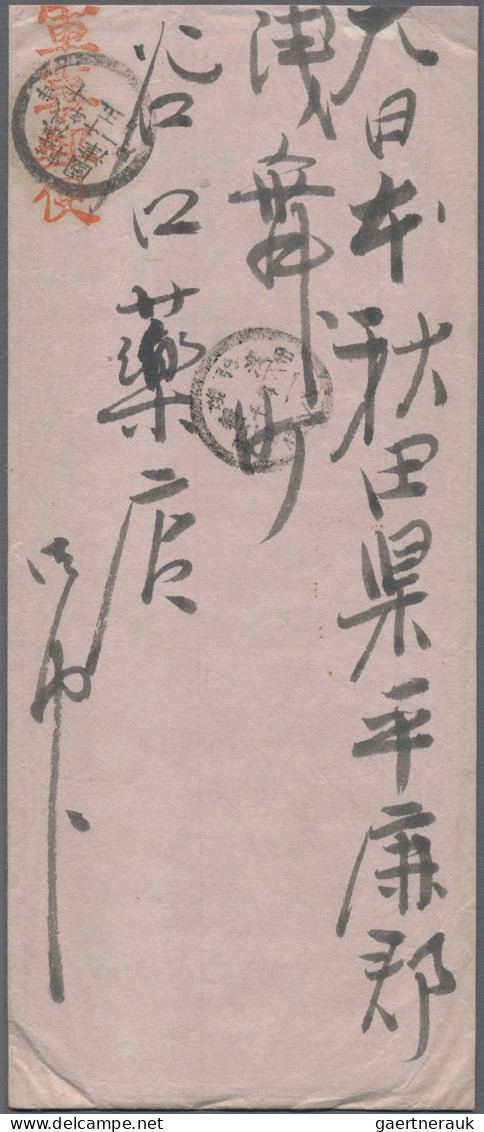 大日本秋田県平鹿郡
浅舞町
谷口薬店
御中
軍事郵便
www.delcampe.net
gaertnerauk